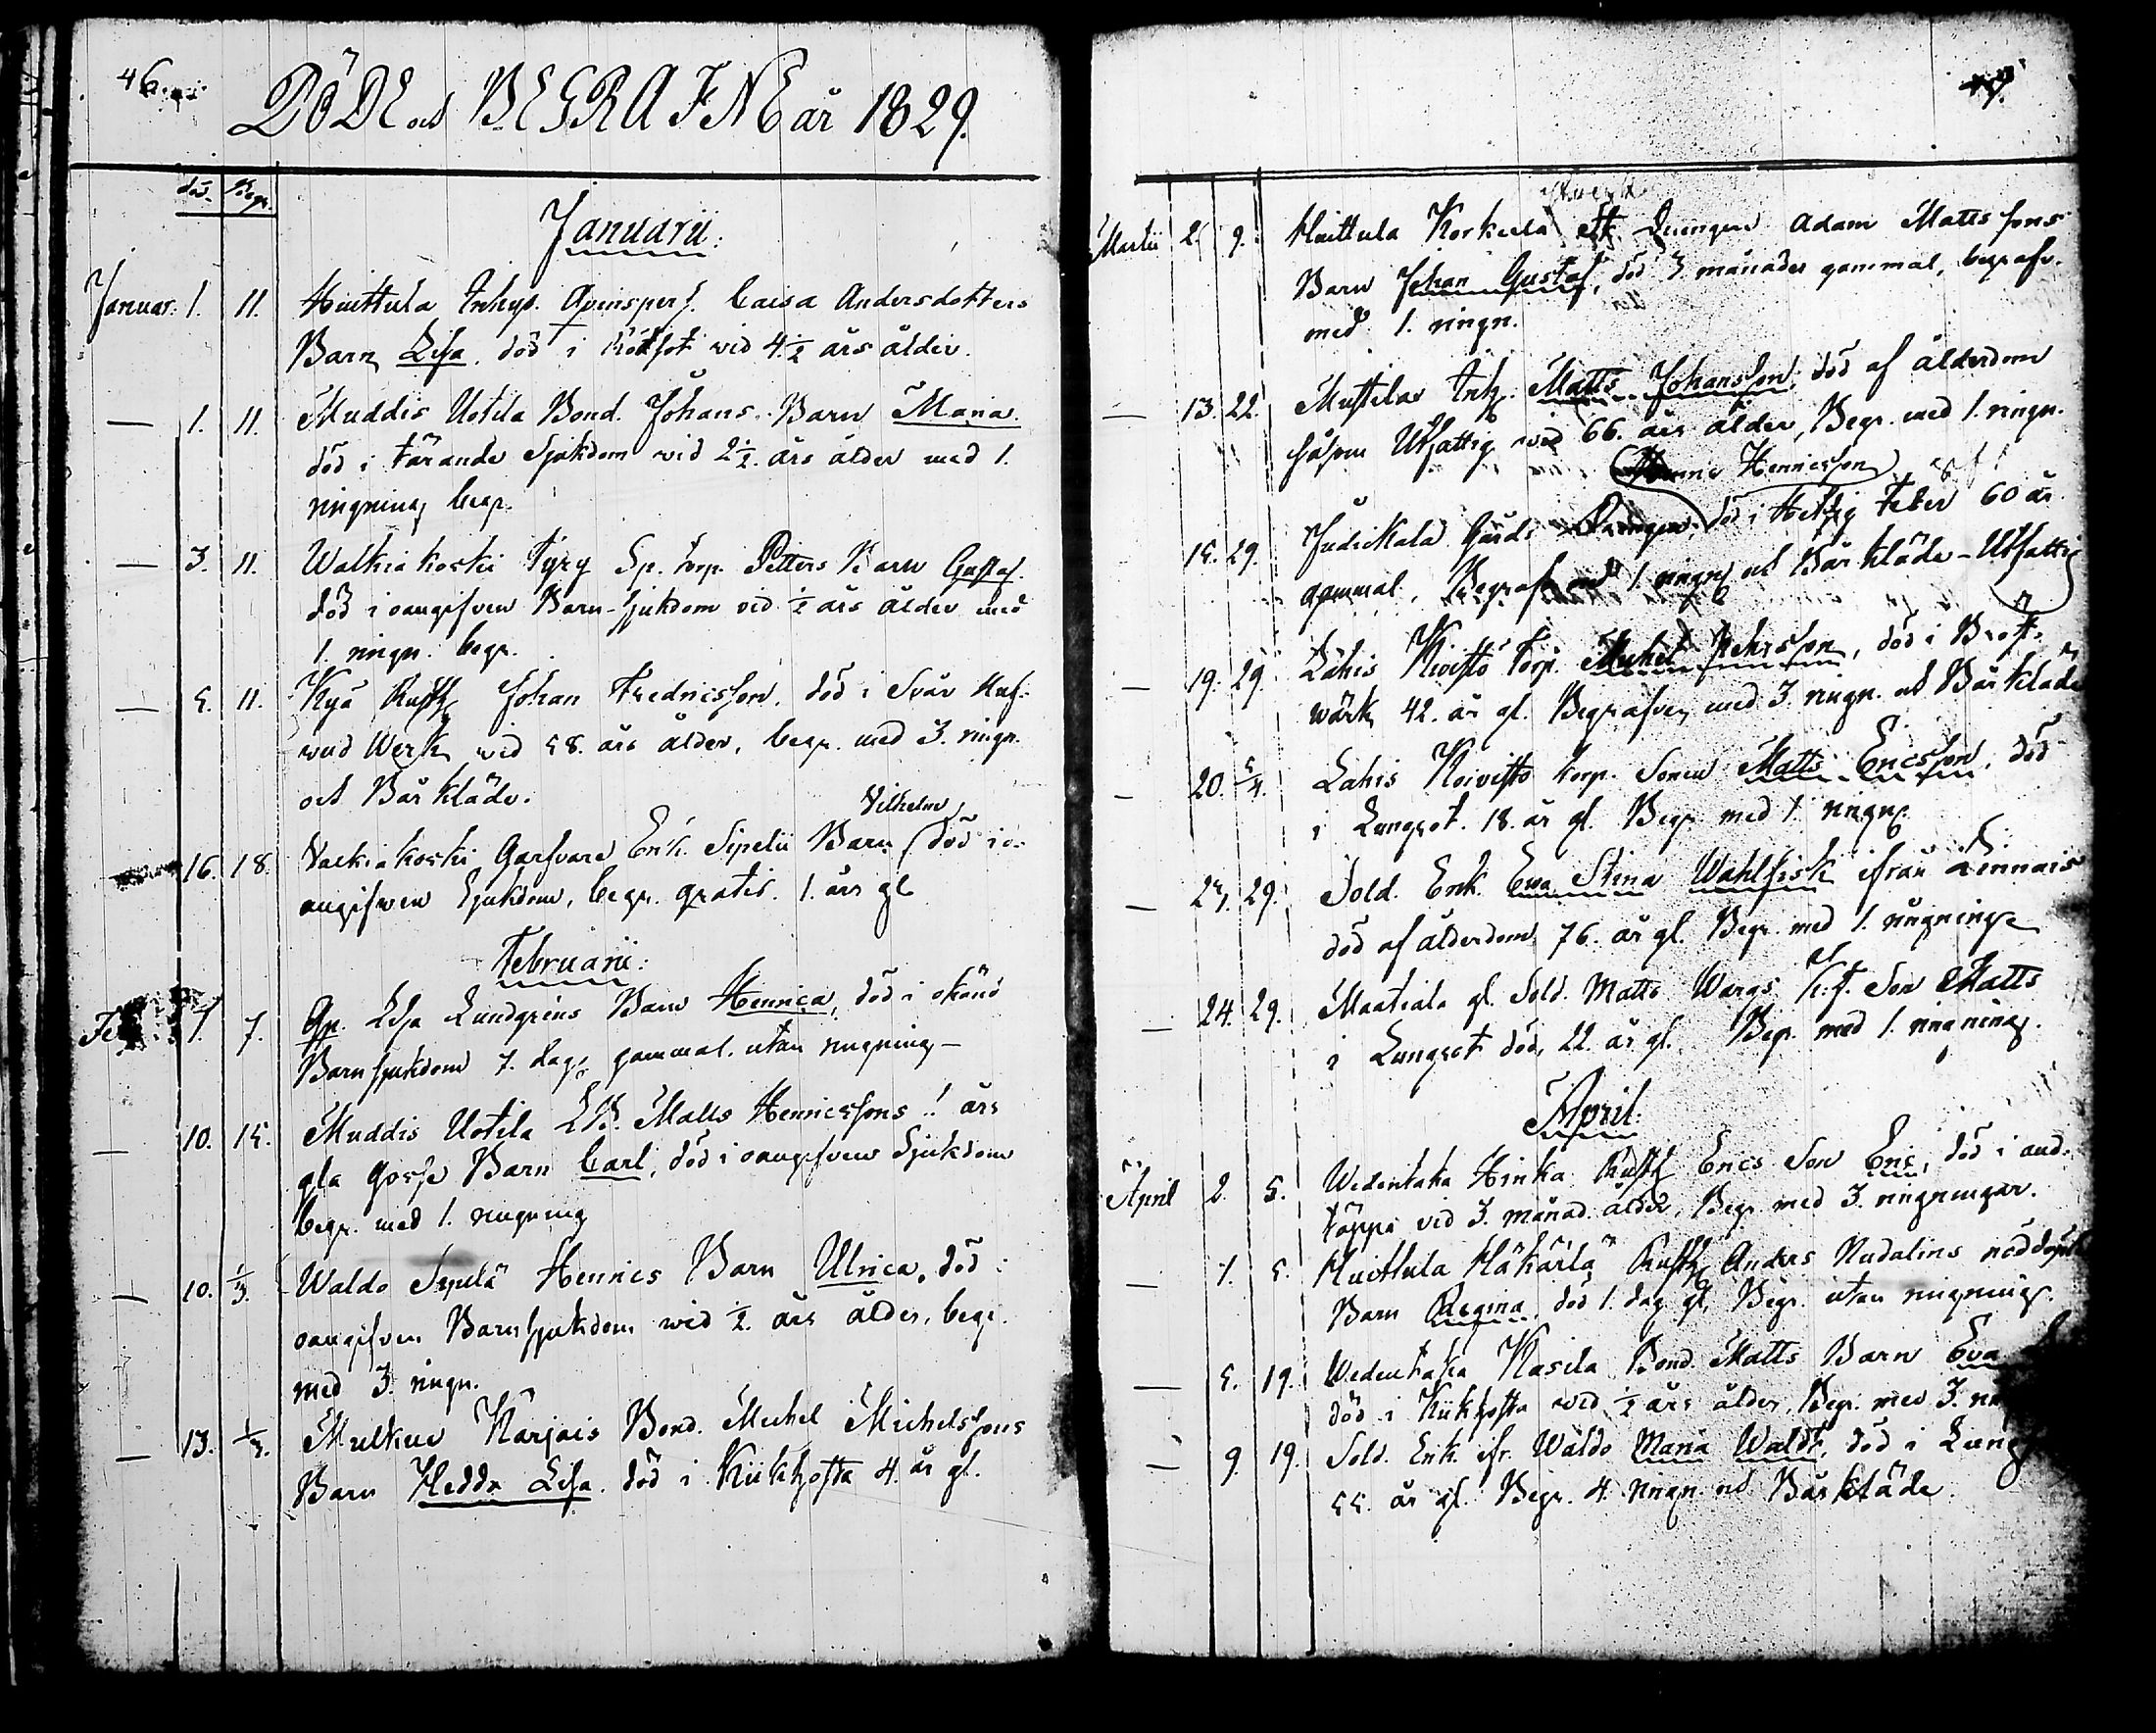 46.
DÖDE och BEGRAFNE år 1829.
död. Begr.
Januarii:
Januar: 1. 11. Huittula Inhys. Qvinspers. Caisa Andersdotters
Barn Lisa, död i Rödsot wid 4 1/2 års ålder.
— 1. 11. Muddis Uotila Bond. Johans Barn Maria.
död i tärande Sjukdom wid 2 1/2 års ålder med 1.
ringning begr.
— 3. 11. Walkiakoski Tyry Sp. torp. Petters Barn Gustaf.
död i oangifven Barn-sjukdom vid 1/2 års ålder med
1. ringn. begr.
— 5. 11. Kyä Rusth Johan Fredricsson, död i Svår Huf-
wud Werk wid 58. års ålder, begr. med 3. ringn.
och Bårkläde.
Vilhelm
16. 18. Valkiakoski Garfvare Erik Sipelii Barn död i o-
angifwen Sjukdom, begr. gratis. 1. års gl
Februarii:
Fe 1. 7. Qp. Lisa Lundgrens Barn Henrica, död i okänd
Barnsjukdom 7. dagr gammal. utan ringning —
— 10. 15. Muddis Uotila Matts Henricssons 1 års
gla gosse Barn Carl, död i oangifven Sjukdom
begr. med 1. ringning
— 10. 1/3. Waldo Sipilä Henrics Barn Ulrica, död i
oangifven Barnsjukdom wid 1/2 års ålder, begr.
med 3. ringn.
— 13. 1/3. Mulkue Karjais Bond. Michel Michelssons
Barn Hedda Lisa. död i Kikhosta 4. år gl.
47.
Martii 2. 9. Huittula Korkula Drängen Adam Mattssons
Barn Johan Gustaf, död 3 månader gammal, begrafv.
med 1. ringn.
— 13. 22. Mustilas Inh. Matts Johansson, död af ålderdom
såsom Utfattig wid 66. års ålder, Begr. med 1. ringn.
Henricsson
15. 29. Judickala Gårds Drängen, död i Hetsig Feber 60 år
gammal, Begrafven 1 ringn och Bårkläde - Utfattig
— 19. 29. Lahis Koivisto torp. Michel Mehrsson, död i Bröst-
wärk 42. år gl. Begrafven med 3. ringn. och Bårkläde
— 20. 5/4. Lahis Koivisto torp. Sonen Matts Ericsson, död
i Lungsot. 18. år gl. Begr med 1. ringn.
— 24. 29. Sold. Enk. Ewa Stina Wahlfisk ifrån Lennais
död af ålderdom 76. år gl. Begr. med 1. ringning
— 24. 29. Maatiala gl. Sold. Matts Wargs Son Matts
i Lungsot död, 22. år gl. Begr. med 1. ringning.
April:
April 2. 5. Wedentaka Hinka Rusth Erics Son Eric, död i and-
täppa vid 3. månad. ålder, Begr med 3. ringningar.
— 1. 5. Huittula Häkärlä Rusth Anders Nudalins
Barn Regina, död 1. dag gl, Begr. utan ringning.
— 5. 19. Wedentaka Kasila Bond. Matts Barn Eva
död i Kikhosta wid 1/2 års ålder, Begr. med 3.
— 9. 19. Sold. Enk. ifr. Wäldo Maria Waldt, död i Lung
55. år gl. Begr. 4. ringn. och Bårkläde.